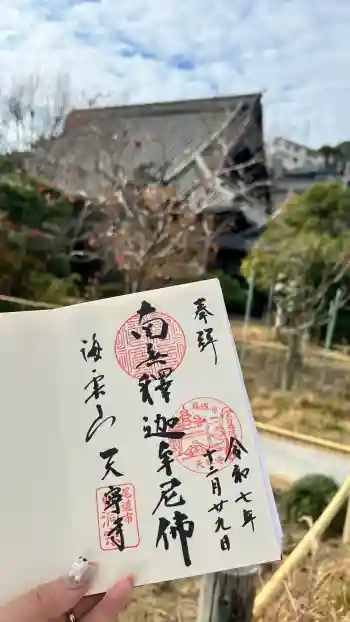 奉拝
令和七年
十二月廿九日
南無釋迦牟尼佛
海雲山
天寧寺
尾道市